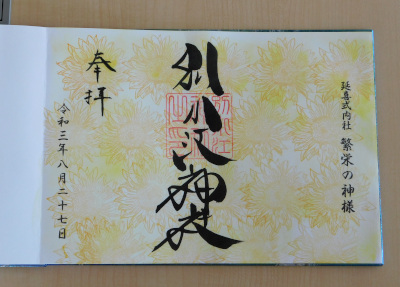 延喜式内社
繁栄の神様
別小江神社
奉拝
令和三年八月二十七日